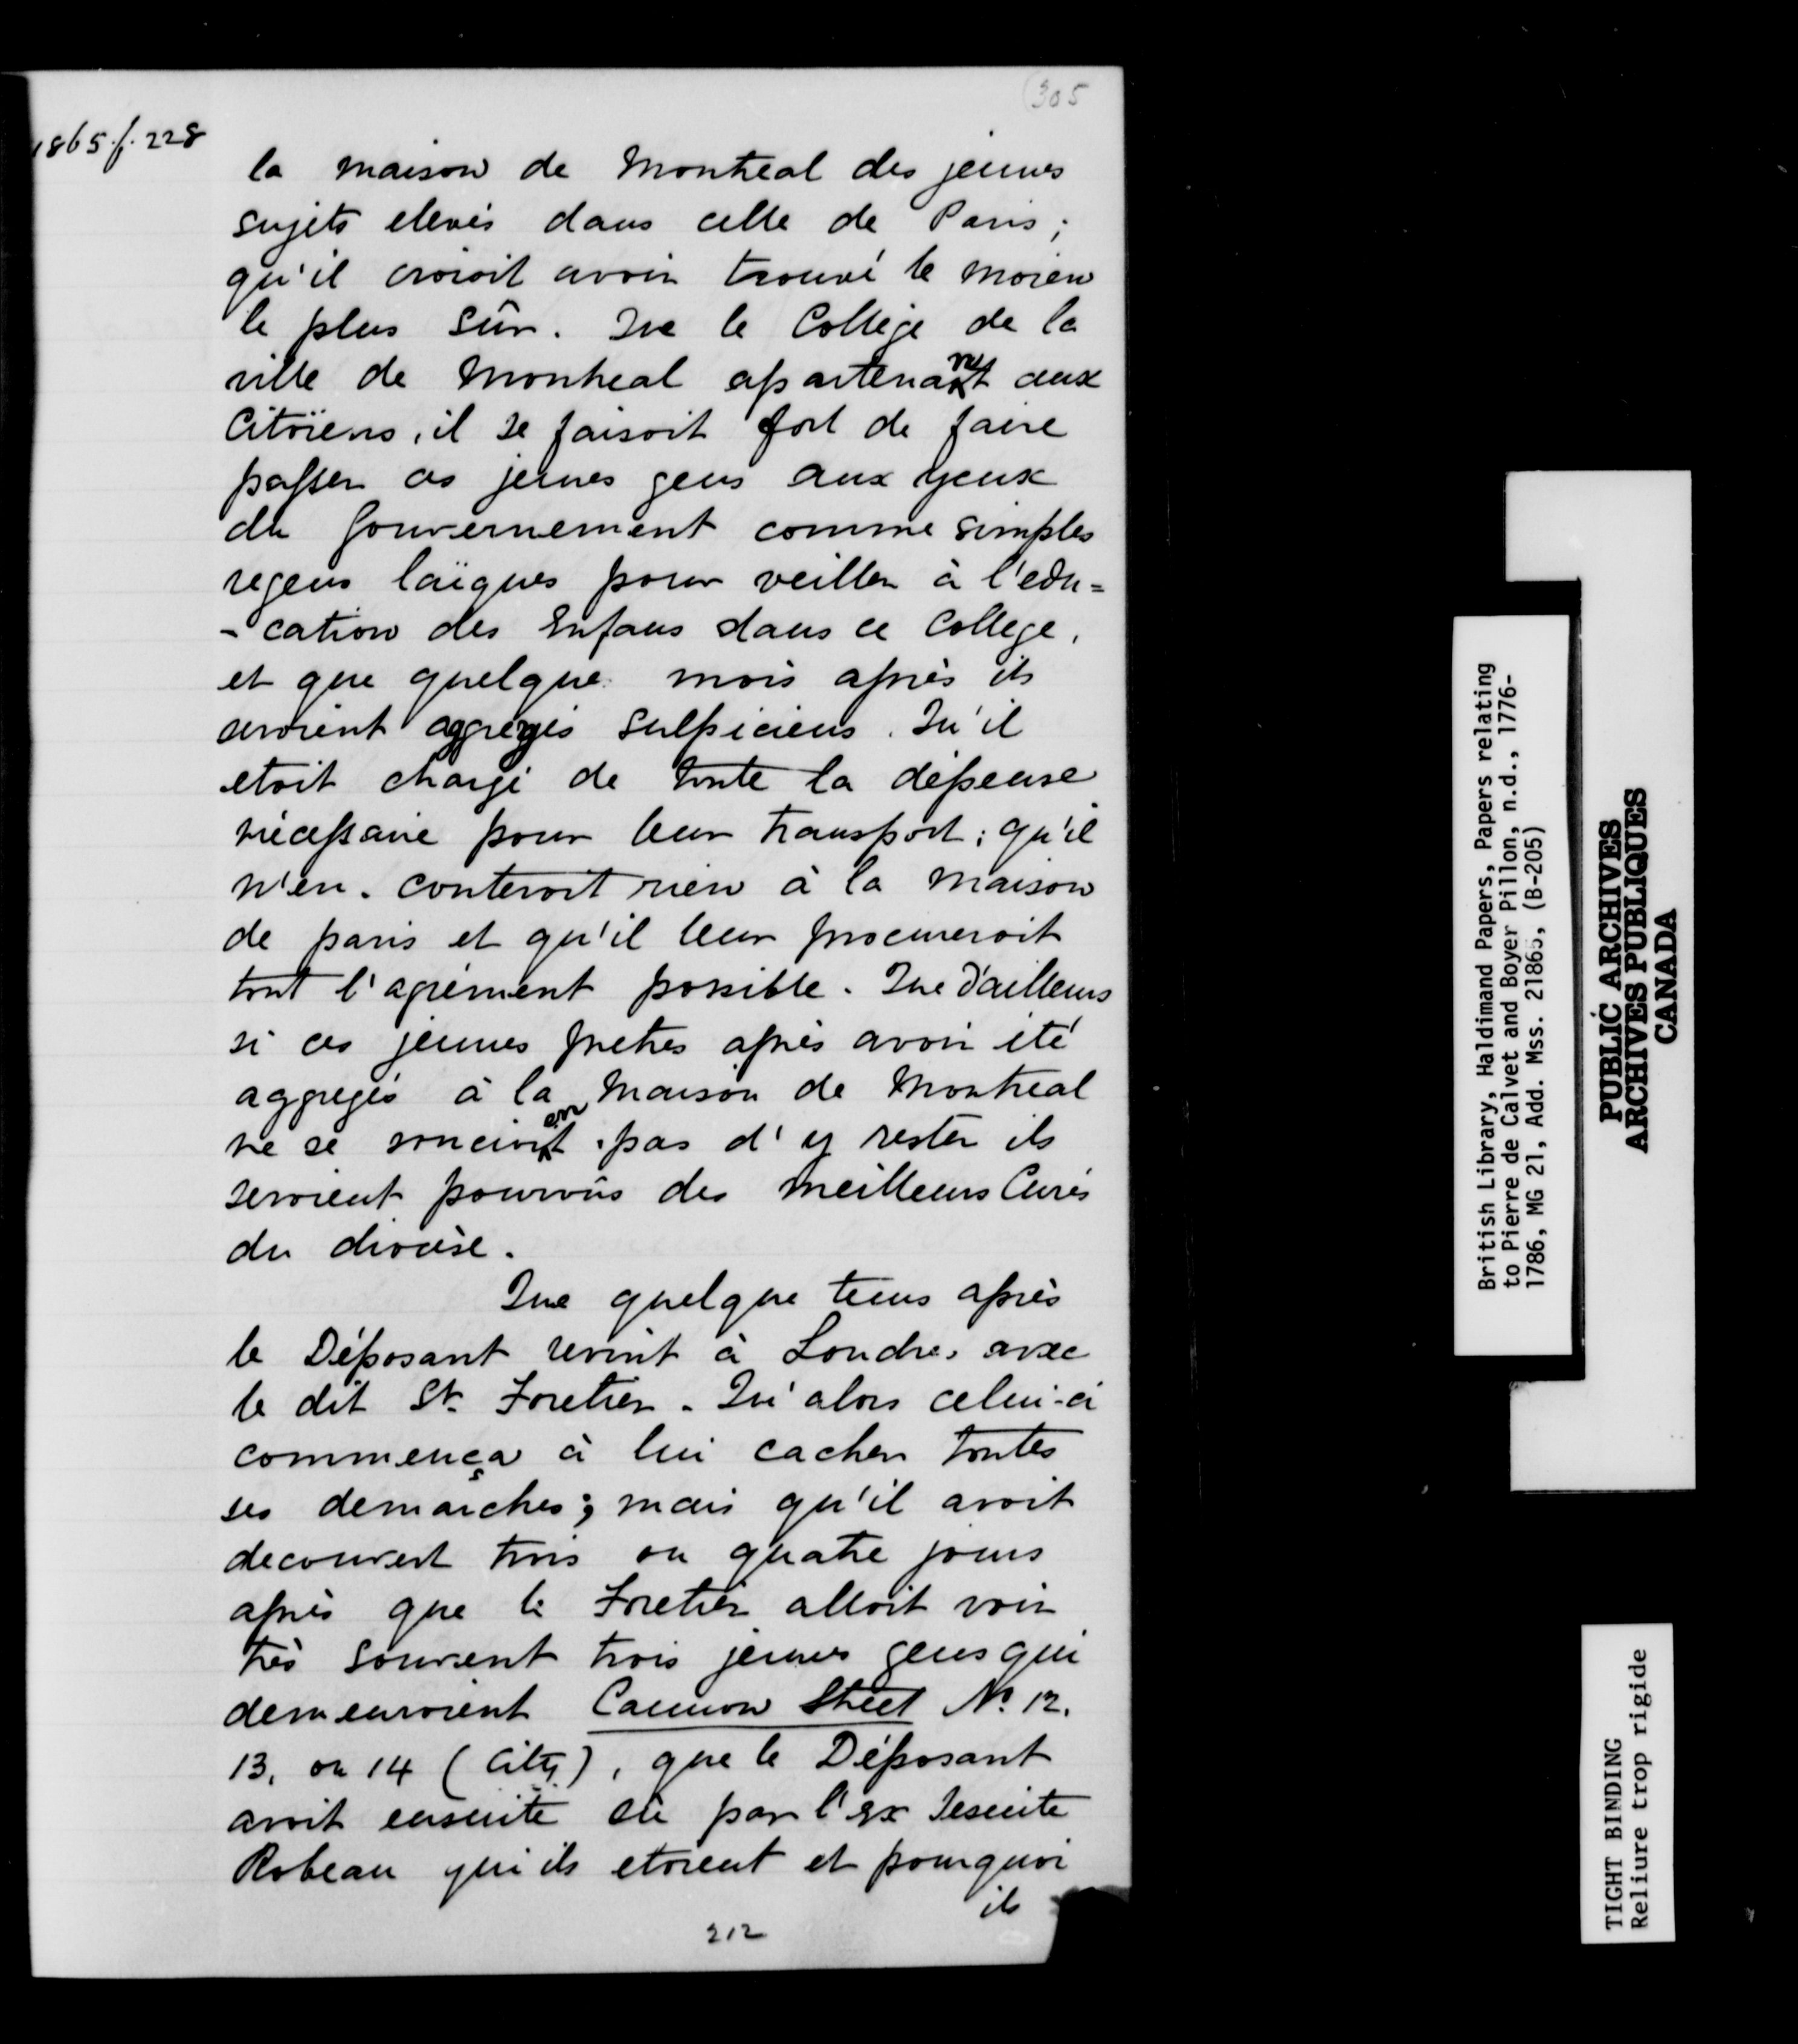 305
1865.f.228
la maison de Montreal des jeunes
sujets elevés dans celle de Paris;
qu'il croioit avoir trouvé le moien
le plus sûr. Que le College de la
ville de Montreal apartenant aux
Citoïens, il se faisoit fort de faire
passer ces jeunes gens aux yeux
du Gouvernement comme simples
regens laïques pour veiller à l'edu=
-cation des Enfans dans ce College,
et que quelque mois après ils
seroient aggregés Sulpiciens. Qu'il
etoit chargé de toute la dépense
nécessaire pour leur transport; qu'il
n'en couteroit rien à la maison
de paris et qu'il leur procureroit
tout l'agrément possible. Que d'ailleurs
si ces jeunes pretres après avoir été
aggregés à la Maison de Montreal
ne se soucioient pas d'y rester ils
seroient pourvûs des meilleurs Cures
du diocèse.
Que quelque tems après
le Déposant revint à Londres avec
le dit Sr. Foretier. Qu'alors celui-ci
commença à lui cacher toutes
ses demarches; mais qu'il avoit
decouvert trois ou quatre jours
après que le Foretier alloit voir
très souvent trois jeunes gens qui
demeuroient Cannon Street No. 12.
13, ou 14 (City), que le Déposant
avoit ensuite sû par l'ex Jesuite
Robeau qui ils etoient et pourquoi
ils
212
British Library, Haldimand Papers, Papers relating
to Pierre de Calvet and Boyer Pillon, n.d., 1776-
1786, MG 21, Add. Mss. 21865, (B-205)
PUBLIC ARCHIVES
ARCHIVES PUBLIQUES
CANADA
TIGHT BINDING
Reliure trop rigide